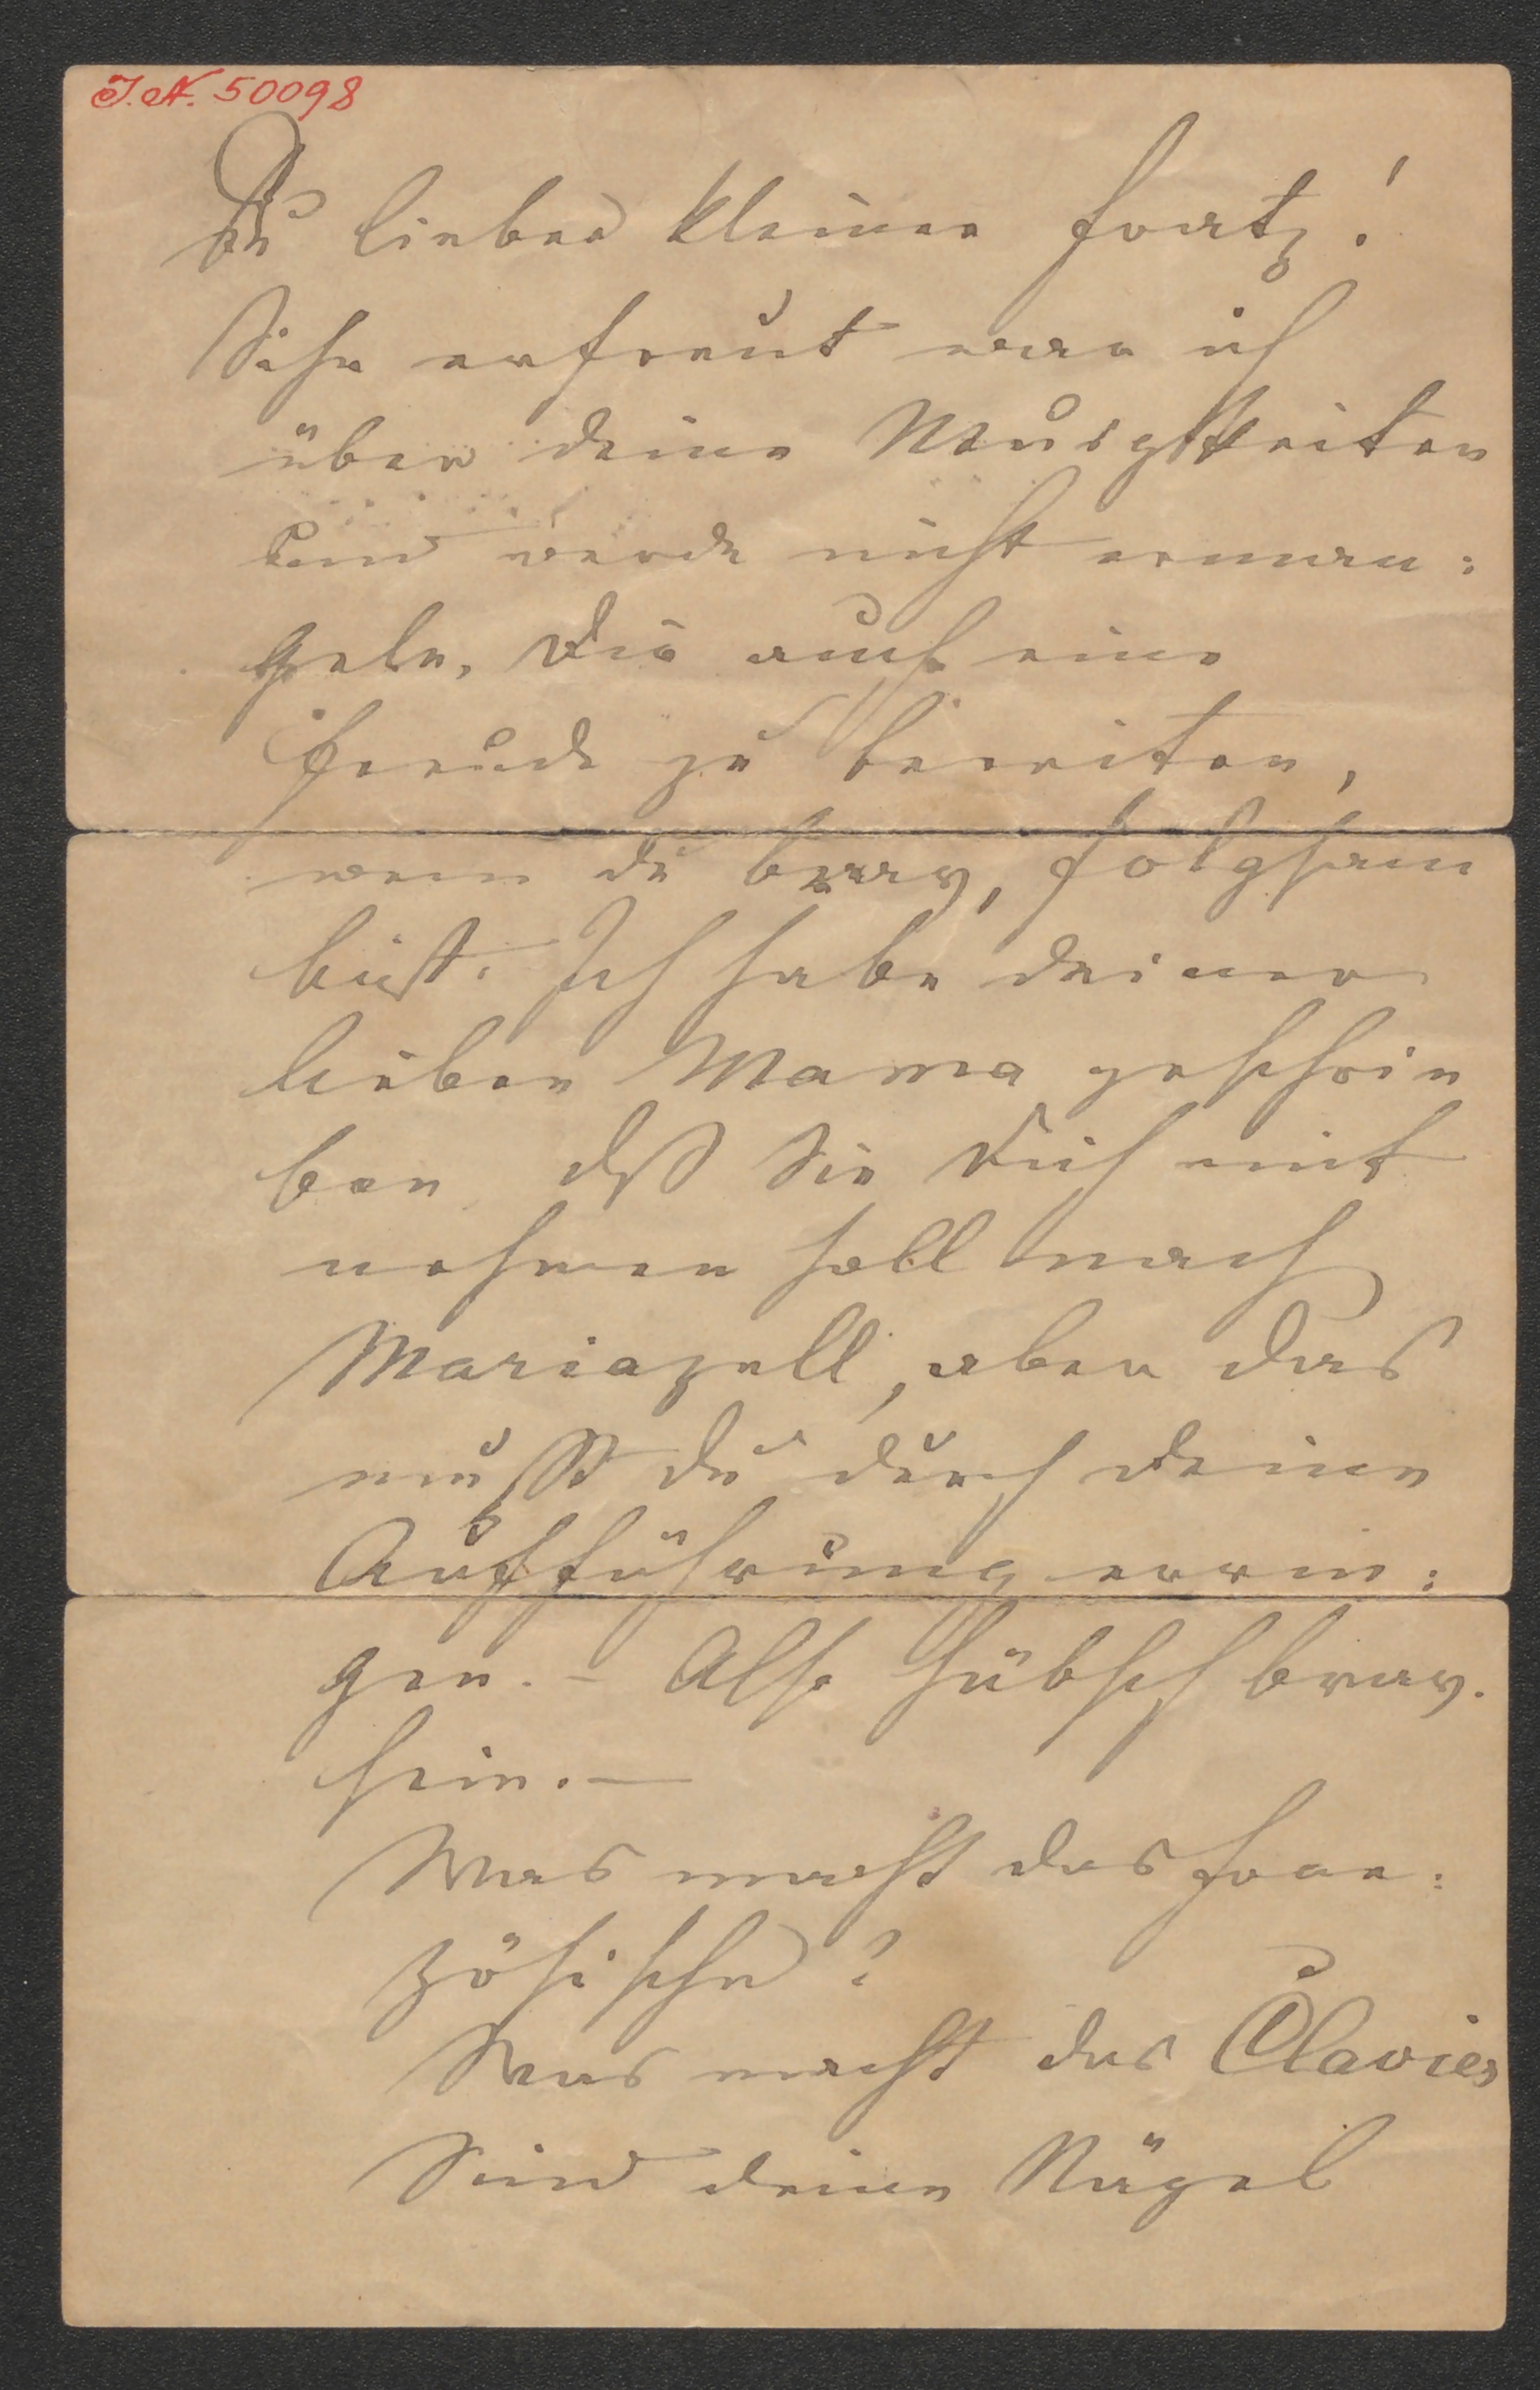 I.N. 50098
Du lieber kleiner Fratz!
Sehr erfreut war ich
über deine Neuigkeiten
und werde nicht erman:
geln, dir auch eine
Freude zu bereiten,
wenn du brav, folgsam
bist. Ich habe deiner
lieben Mama geschrie
ben dß Sie dich mit
nehmen soll nach
Mariazell, aber das
mußt du durch deine
Aufführung errin:
gen. – Also hübsch brav.
sein. –
Was macht das fran:
zösische?
Was macht das Clavier
Sind deine Nägel